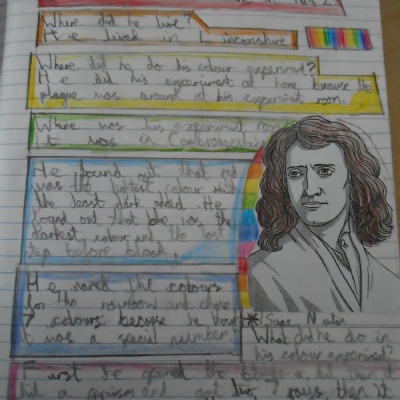 Where did he live?
He lived in Lincolnshire
Where did he do his colour experiment?
He did his experiment at home because the
plague was around at his experiment room.
Where was his experiment room
It was in Cambridgeshire
He found out that red
was the lightest colour with
the least dark added. He
found out that blue was the
darkest colour and the last
step before black.
He named the colours
for the rainbow and chose
7 colours because he
it was a special number
Isaac Newton
What did he do in
his colour experiment?
First he opened the a bit then it
hit a and got 7 rays then it